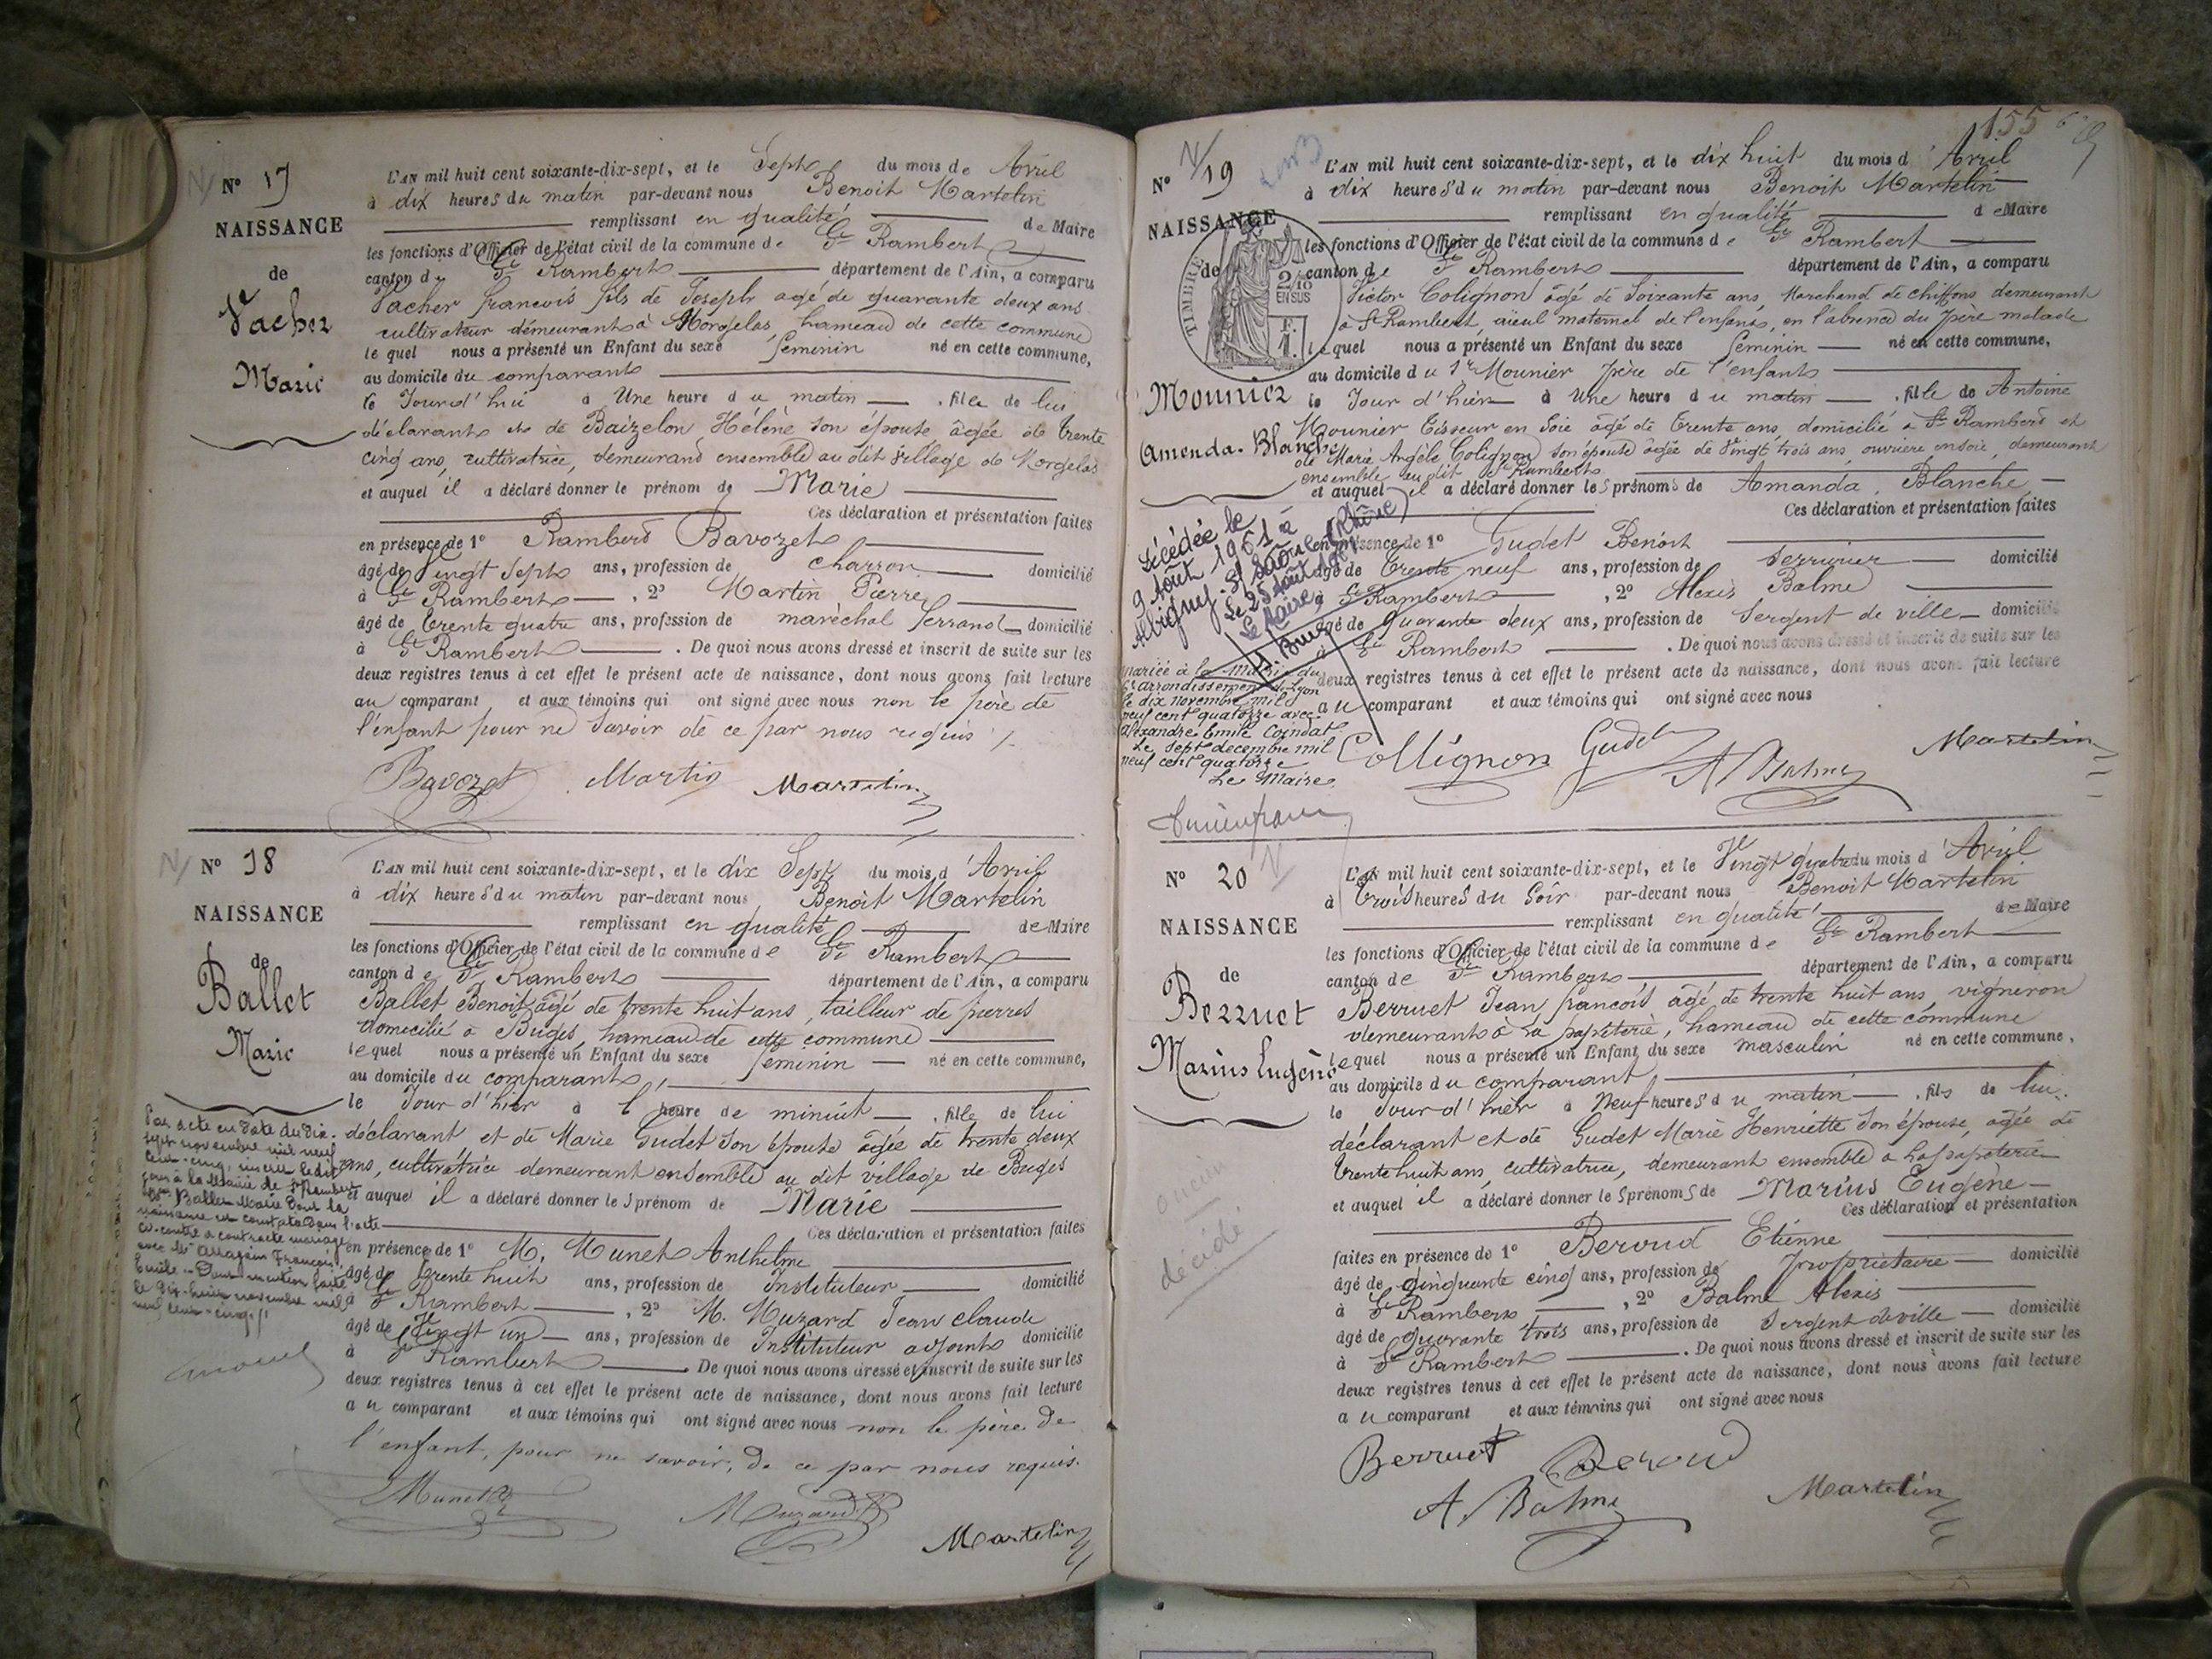 N° 17
NAISSANCE
de
Vacher
Marie
L'AN mil huit cent soixante-dix-sept, et le Sept du mois de Avril
à dix heures du matin par-devant nous Benoit Martelin
remplissant en qualité de Maire
les fonctions d'Officier de l'état civil de la commune de St Rambert
canton de St Rambert département de l'Ain, a comparu
Vacher francois fils de Joseph agé de quarante deux ans
cultivateur demeurant à Morgelas, hameau de cette commune
lequel nous a présenté un Enfant du sexe féminin né en cette commune,
au domicile du comparant
le Jourd'hui à Une heure du matin, fille de lui
déclarant et de Baizelon Hélène son épouse âgée de trente
cinq ans, cultivatrice, demeurant ensemble au dit village de Morgelas
et auquel il a déclaré donner le prénom de Marie
Ces déclaration et présentation faites
en présence de 1° Rambert Bavozet
âgé de Vingt Sept ans, profession de charron domicilié
à St Rambert, 2° Martin Pierre
âgé de trente quatre ans, profession de maréchal ferrand domicilié
à St Rambert. De quoi nous avons dressé et inscrit de suite sur les
deux registres tenus à cet effet le présent acte de naissance, dont nous avons fait lecture
au comparant et aux témoins qui ont signé avec nous non le père de
l'enfant pour ne savoir de ce par nous requis
Bavozet Martin Martelin
N° 18
NAISSANCE
de
Ballet
Marie
L'AN mil huit cent soixante-dix-sept, et le dix Sept du mois d'Avril
à dix heures du matin par-devant nous Benoit Martelin
remplissant en qualité de Maire
les fonctions d'Officier de l'état civil de la commune de St Rambert
canton de St Rambert département de l'Ain, a comparu
Ballet Benoit âgé de trente huit ans, tailleur de pierres
domicilié à Buges, hameau de cette commune
lequel nous a présenté un Enfant du sexe féminin né en cette commune,
au domicile du comparant,
le Jour d'hier à l'heure de minuit, fille de lui
déclarant et de Marie Gudet son épouse âgée de trente deux
ans, cultivatrice demeurant ensemble au dit village de Buges
et auquel il a déclaré donner le prénom de Marie
Ces déclaration et présentation faites
en présence de 1° M. Munet Anthelme
âgé de trente huit ans, profession de Instituteur domicilié
à St Rambert, 2° M. Muzard Jean claude
âgé de Vingt un ans, profession de Instituteur adjoint domicilié
à St Rambert. De quoi nous avons dressé et inscrit de suite sur les
deux registres tenus à cet effet le présent acte de naissance, dont nous avons fait lecture
au comparant et aux témoins qui ont signé avec nous non le père de
l'enfant, pour ne savoir, de ce par nous requis.
Munet Muzard Martelin
Par acte en date du dix-
sept novembre mil neuf
cent-cinq, inscrit le dit
jour à la Mairie de St Rambert
Ballet Marie dont la
naissance est constatée dans l'acte
ci-contre a contracté mariage
avec Mr François
Emile. Dont mention faite
le dix-huit novembre mil
neuf cent-cinq
155
N° 19
NAISSANCE
de
TIMBRE
2/10
EN SUS
F.
1.
Mounier
Amenda. Blanche
L'AN mil huit cent soixante-dix-sept, et le dix huit du mois d'Avril
à dix heures du matin par-devant nous Benoit Martelin
remplissant en qualité de Maire
les fonctions d'Officier de l'état civil de la commune de St Rambert
canton de St Rambert département de l'Ain, a comparu
Victor Colignon âgé de Soixante ans, Marchand de chiffons demeurant
à St Rambert, aïeul maternel de l'enfant, en l'absence du père malade
lequel nous a présenté un Enfant du sexe féminin né en cette commune,
au domicile du Sr Mounier père de l'enfant
le Jour d'hier à Une heure du matin, fille de Antoine
Mounier Tisseur en Soie âgé de trente ans, domicilié à St Rambert et
de Marie Angèle Colignon son épouse âgée de Vingt trois ans, ouvrière en soie, demeurant
ensemble au dit St Rambert
et auquel il a déclaré donner les prénoms de Amanda, Blanche
Ces déclaration et présentation faites
en présence de 1° Gudet Benoit
âgé de trente neuf ans, profession de Serrurier domicilié
à St Rambert, 2° Alexis Balme
âgé de quarante deux ans, profession de Sergent de ville domicilié
à St Rambert. De quoi nous avons dressé et inscrit de suite sur les
deux registres tenus à cet effet le présent acte de naissance, dont nous avons fait lecture
au comparant et aux témoins qui ont signé avec nous
Collignon Gudet A Balme Martelin
Décédée le
9 Août 1961 à
Albigny-s/Saône (Rhône)
Le 25 Août 1961
Le Maire,
Mariée à la Mairie du
arrondissement de Lyon
le dix novembre mil
neuf cent quatorze avec
Alexandre Emile Coindat
Le sept decembre mil
neuf cent quatorze
Le Maire
N° 20
NAISSANCE
de
Berruet
Marius Eugène
L'AN mil huit cent soixante-dix-sept, et le Vingt quatre du mois d'Avril
à trois heures du Soir par-devant nous Benoit Martelin
remplissant en qualité de Maire
les fonctions d'Officier de l'état civil de la commune de St Rambert
canton de St Rambert département de l'Ain, a comparu
Berruet Jean francois âgé de trente huit ans, vigneron
demeurant à La papeterie, hameau de cette commune
lequel nous a présenté un Enfant du sexe masculin né en cette commune,
au domicile du comparant
le Jour d'hier à Neuf heures du matin, fils de lui
déclarant et de Gudet Marie Henriette son épouse, âgée de
trente huit ans, cultivatrice, demeurant ensemble à La papeterie
et auquel il a déclaré donner les prénoms de Marius Eugène
Ces déclaration et présentation
faites en présence de 1° Beroud Etienne
âgé de cinquante cinq ans, profession de propriétaire domicilié
à St Rambert, 2° Balme Alexis
âgé de quarante trois ans, profession de Sergent de ville domicilié
à St Rambert. De quoi nous avons dressé et inscrit de suite sur les
deux registres tenus à cet effet le présent acte de naissance, dont nous avons fait lecture
au comparant et aux témoins qui ont signé avec nous
Berruet Beroud
A. Balme Martelin
décédé